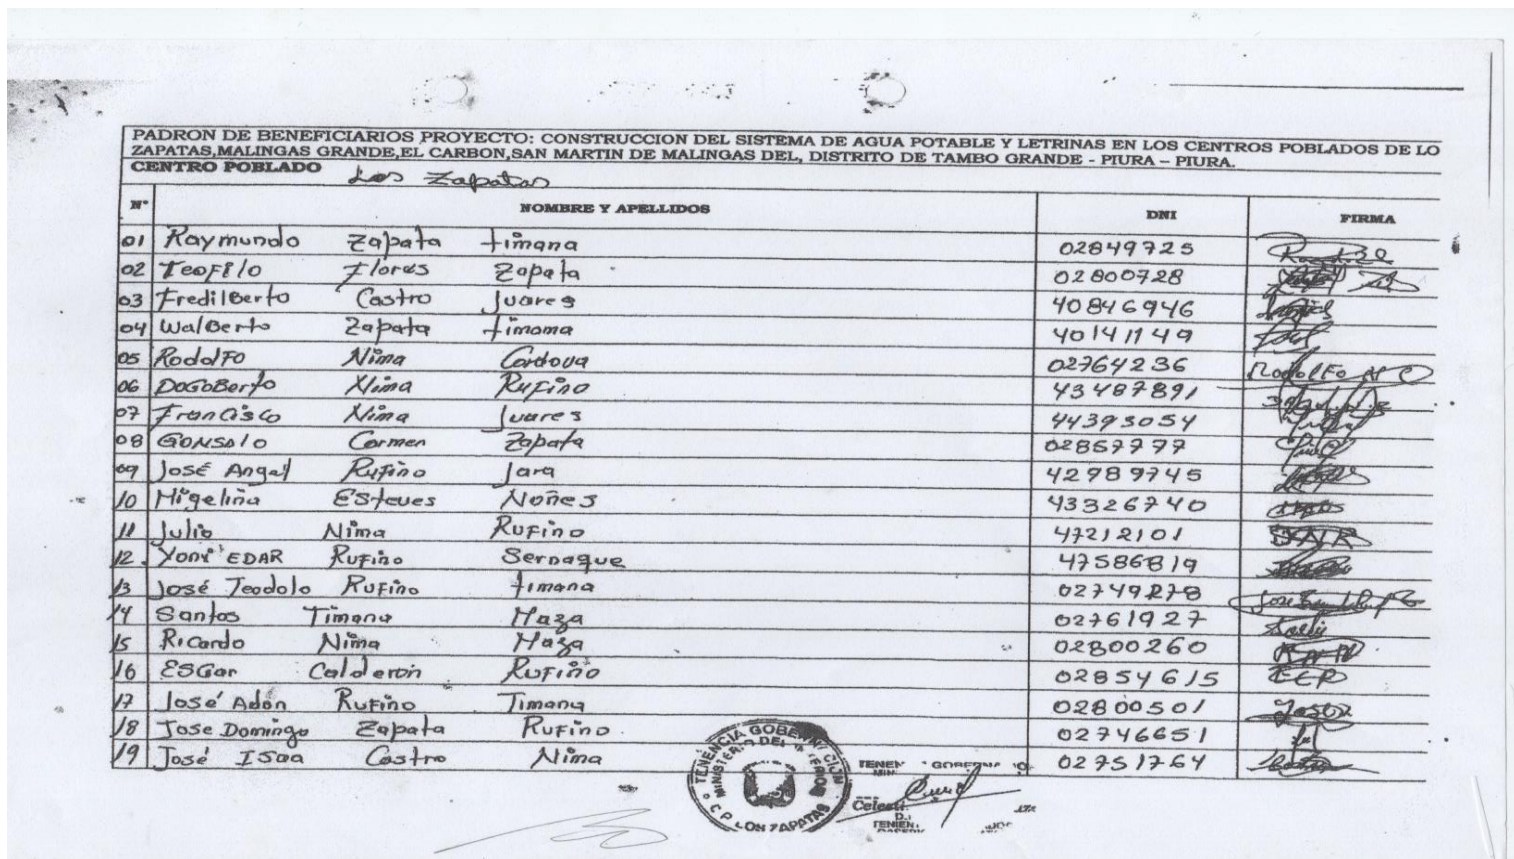 PADRON DE BENEFICIARIOS PROYECTO: CONSTRUCCION DEL SISTEMA DE AGUA POTABLE Y LETRINAS EN LOS CENTROS POBLADOS DE LO
ZAPATAS,MALINGAS GRANDE,EL CARBON,SAN MARTIN DE MALINGAS DEL, DISTRITO DE TAMBO GRANDE - PIURA – PIURA.
CENTRO POBLADO Los Zapatas
N° NOMBRE Y APELLIDOS DNI FIRMA
01 Raymundo Zapata timana 02849725
02 Teofilo Flores Zapata 02800728
03 Fredilberto Castro Juares 40846946
04 Walberto Zapata timana 40141149
05 Rodolfo Nima Cordova 02764236 Rodolfo N C
06 Dagoberto Nima Rufino 43487891
07 Francisco Nima Juares 44393054
08 Gonsalo Carmen Zapata 02857777
09 José Angel Rufino Jara 42989745
10 Migelina Esteves Noñes 43326740
11 Julio Nima Rufino 47212101 JNR
12. Yoni EDAR Rufino Sernaque 47586819
13 José Teodolo Rufino timana 02749278
14 Santos Timana Maza 02761927
15 Ricardo Nima Maza 02800260
16 ESGar Calderón Rufino 02854615 ECR
17 José Adán Rufino Timana 02800501
18 Jose Domingo Zapata Rufino 02746651
19 José Isaa Castro Nima 02751764
TENENCIA GOBERNACION
MINISTERIO DEL INTERIOR
C.P. LOS ZAPATAS